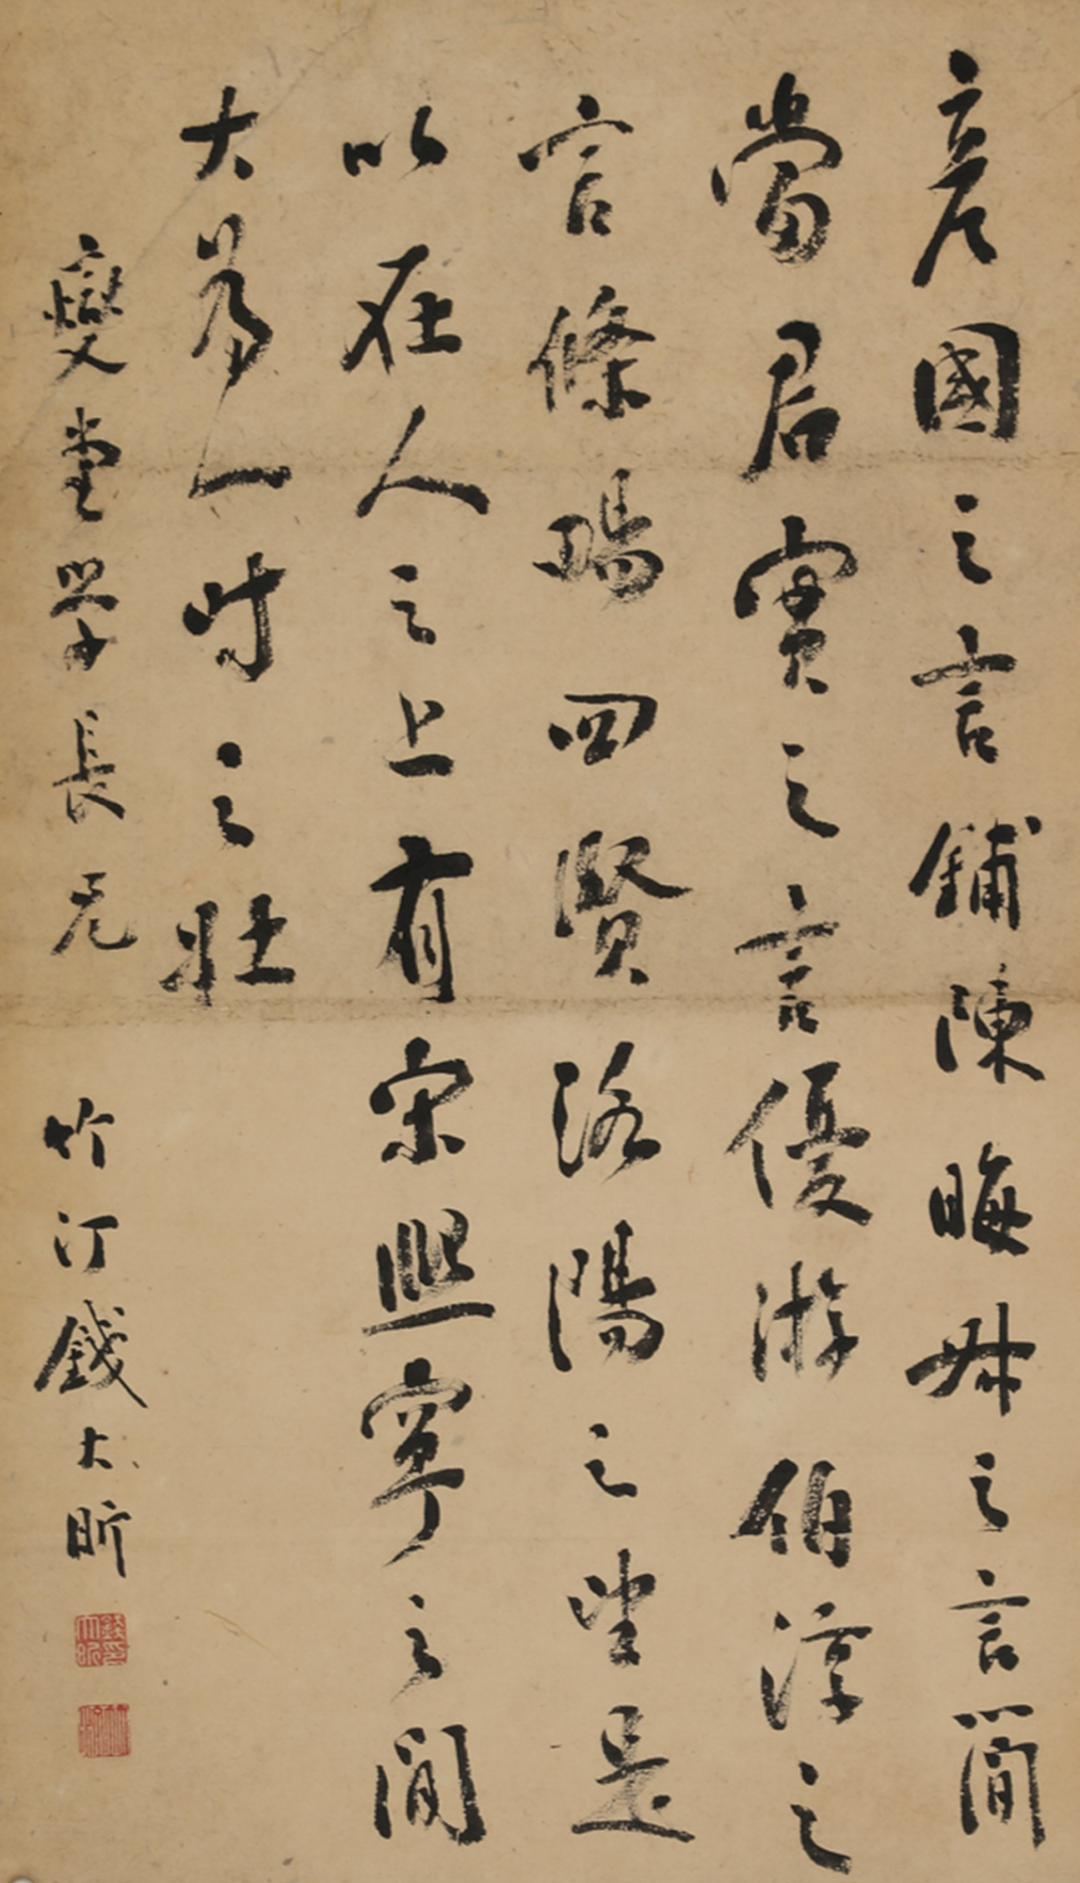 彥國之言鋪陳晦叔之言簡
當君實之言優游伯淳之
言條暢四賢洛陽之望是
以在人之上有宋熙寧之間
大為一時之壯
燮堂學長兄 竹汀錢大昕